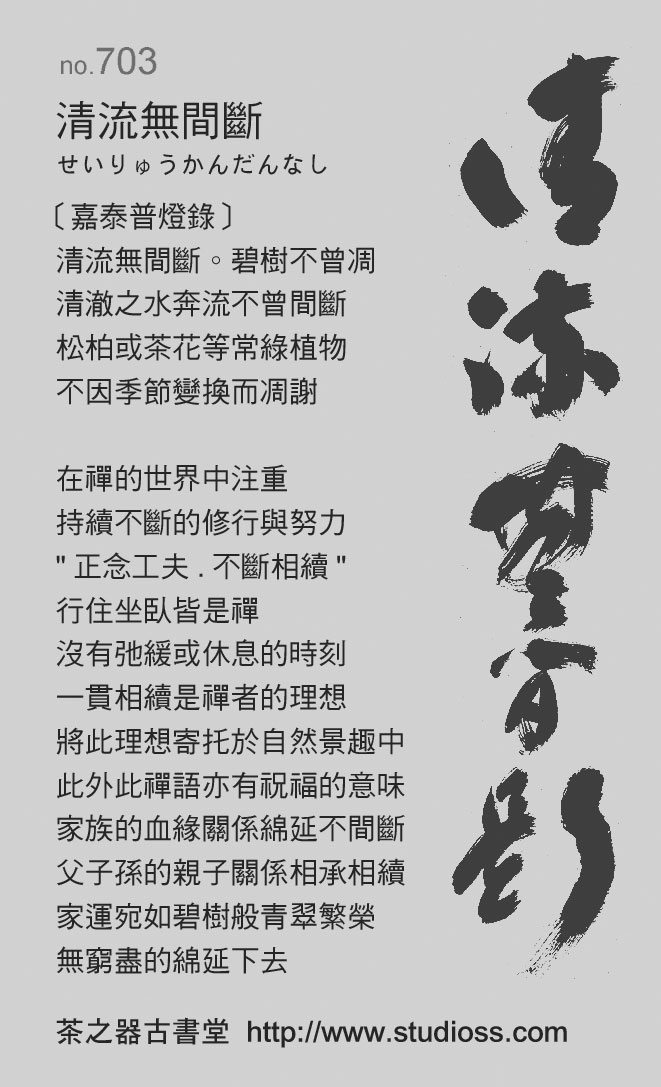 no.703
清流無間斷
せいりゅうかんだんなし
〔嘉泰普燈錄〕
清流無間斷。碧樹不曾凋
清澈之水奔流不曾間斷
松柏或茶花等常綠植物
不因季節變換而凋謝
在禪的世界中注重
持續不斷的修行與努力
"正念工夫.不斷相續"
行住坐臥皆是禪
沒有弛緩或休息的時刻
一貫相續是禪者的理想
將此理想寄托於自然景趣中
此外此禪語亦有祝福的意味
家族的血緣關係綿延不間斷
父子孫的親子關係相承相續
家運宛如碧樹般青翠繁榮
無窮盡的綿延下去
茶之器古書堂 http://www.studioss.com
清流無間斷